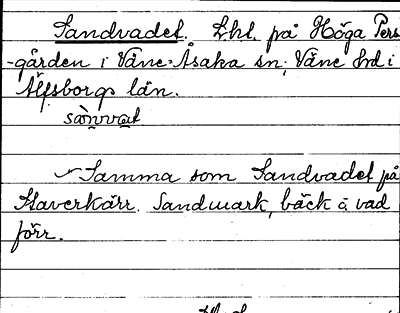 Sandvadet. Lht. på Höga Pers
-gården i Väne-Åsaka sn, Väne hd i
Älfsborgs län.
sànvat
Samma som Sandvadet på
Haverkärr. Sandmark, bäck o. vad
förr.